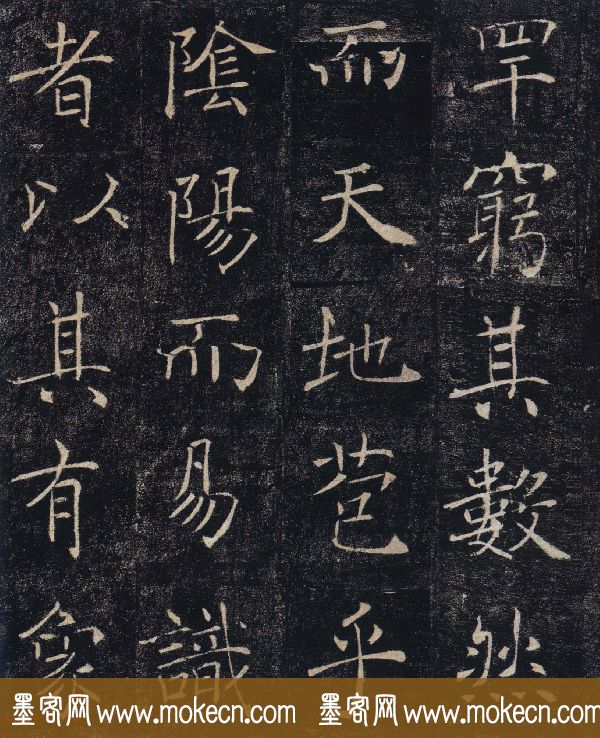 罕窮其數然
而天地苞乎
陰陽而易識
者以其有象
墨客网 www.mokecn.com 墨客网 www.mokecn.com